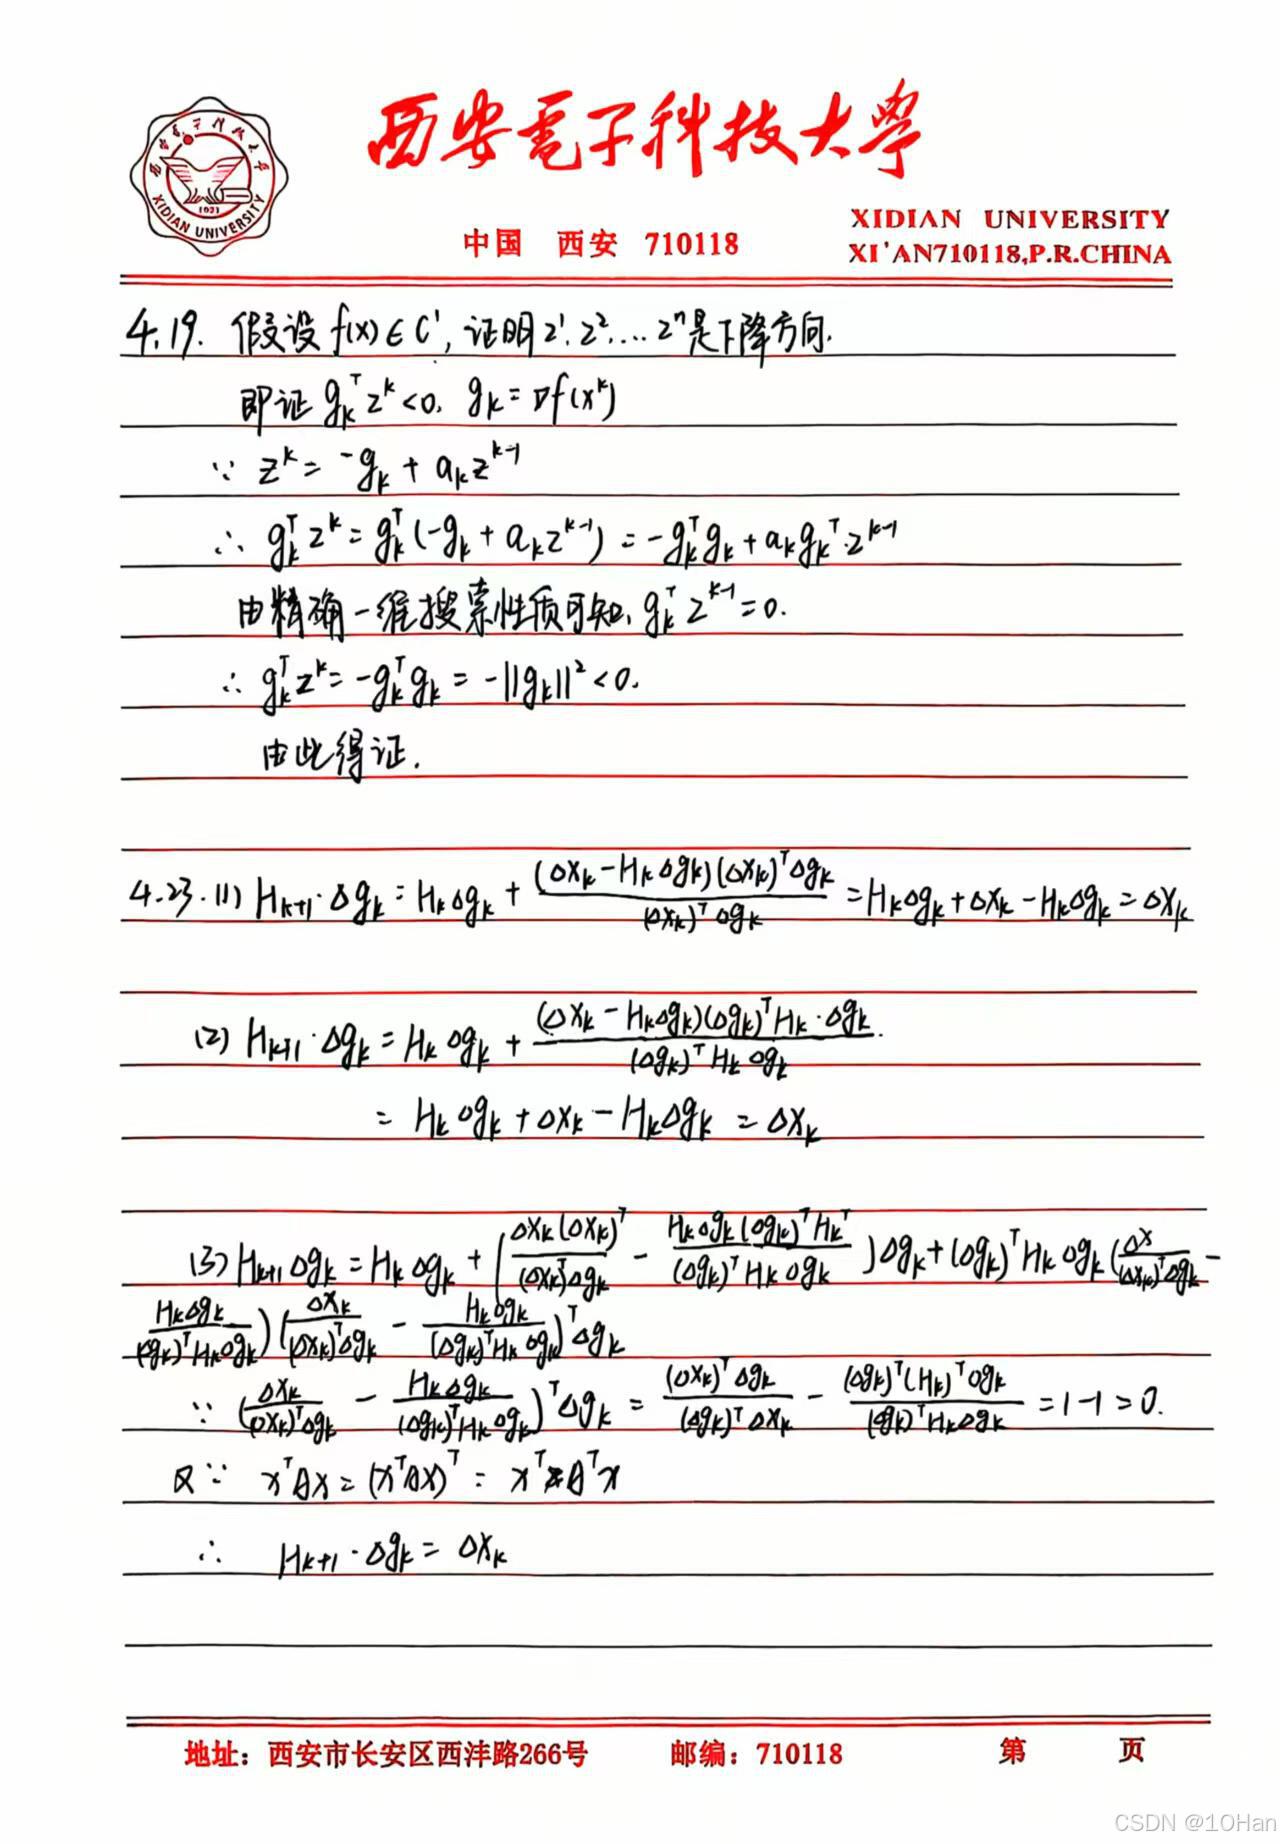 西安電子科技大學
XIDIAN UNIVERSITY
1931
中国 西安 710118
XIDIAN UNIVERSITY
XI'AN710118,P.R.CHINA
4.19. 假设 f(x)∈C¹, 证明 z¹, z², ... zⁿ 是下降方向.
即证 gₖᵀzᵏ<0, gₖ=∇f(xᵏ)
∵ zᵏ = -gₖ + aₖzᵏ⁻¹
∴ gₖᵀzᵏ = gₖᵀ(-gₖ + aₖzᵏ⁻¹) = -gₖᵀgₖ + aₖgₖᵀ·zᵏ⁻¹
由精确一维搜索性质可知, gₖᵀzᵏ⁻¹=0.
∴ gₖᵀzᵏ = -gₖᵀgₖ = -||gₖ||²<0.
由此得证.
4.23. (1) Hₖ₊₁·Δgₖ = HₖΔgₖ + (Δxₖ-HₖΔgₖ)(Δxₖ)ᵀΔgₖ / (Δxₖ)ᵀΔgₖ = HₖΔgₖ+Δxₖ-HₖΔgₖ = Δxₖ
(2) Hₖ₊₁·Δgₖ = HₖΔgₖ + (Δxₖ-HₖΔgₖ)(Δgₖ)ᵀHₖ·Δgₖ / (Δgₖ)ᵀHₖΔgₖ.
= HₖΔgₖ+Δxₖ-HₖΔgₖ = Δxₖ
(3) Hₖ₊₁Δgₖ = HₖΔgₖ + (Δxₖ(Δxₖ)ᵀ / (Δxₖ)ᵀΔgₖ - HₖΔgₖ(Δgₖ)ᵀHₖᵀ / (Δgₖ)ᵀHₖΔgₖ)Δgₖ + (Δgₖ)ᵀHₖΔgₖ(Δx / (Δxₖ)ᵀΔgₖ -
HₖΔgₖ / (Δgₖ)ᵀHₖΔgₖ)(Δxₖ / (Δxₖ)ᵀΔgₖ - HₖΔgₖ / (Δgₖ)ᵀHₖΔgₖ)ᵀΔgₖ
∵ (Δxₖ / (Δxₖ)ᵀΔgₖ - HₖΔgₖ / (Δgₖ)ᵀHₖΔgₖ)ᵀΔgₖ = (Δxₖ)ᵀΔgₖ / (Δgₖ)ᵀΔxₖ - (Δgₖ)ᵀ(Hₖ)ᵀΔgₖ / (Δgₖ)ᵀHₖΔgₖ = 1-1 = 0.
又∵ xᵀAx = (xᵀAx)ᵀ = xᵀAᵀx
∴ Hₖ₊₁·Δgₖ = Δxₖ
地址：西安市长安区西沣路266号 邮编：710118 第 页
CSDN @1OHan